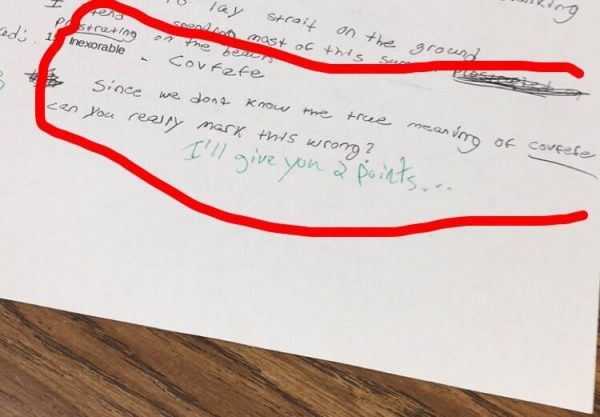 I to lay strait on the ground
tend
Prostrating spending most of this
on the beach
adj. Inexorable - Covfefe
Since we dont know the true meaning of covfefe
can you really mark this wrong?
I'll give you 2 points...